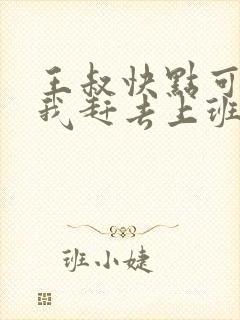 王叔快點可
我赶去上班
班小婕